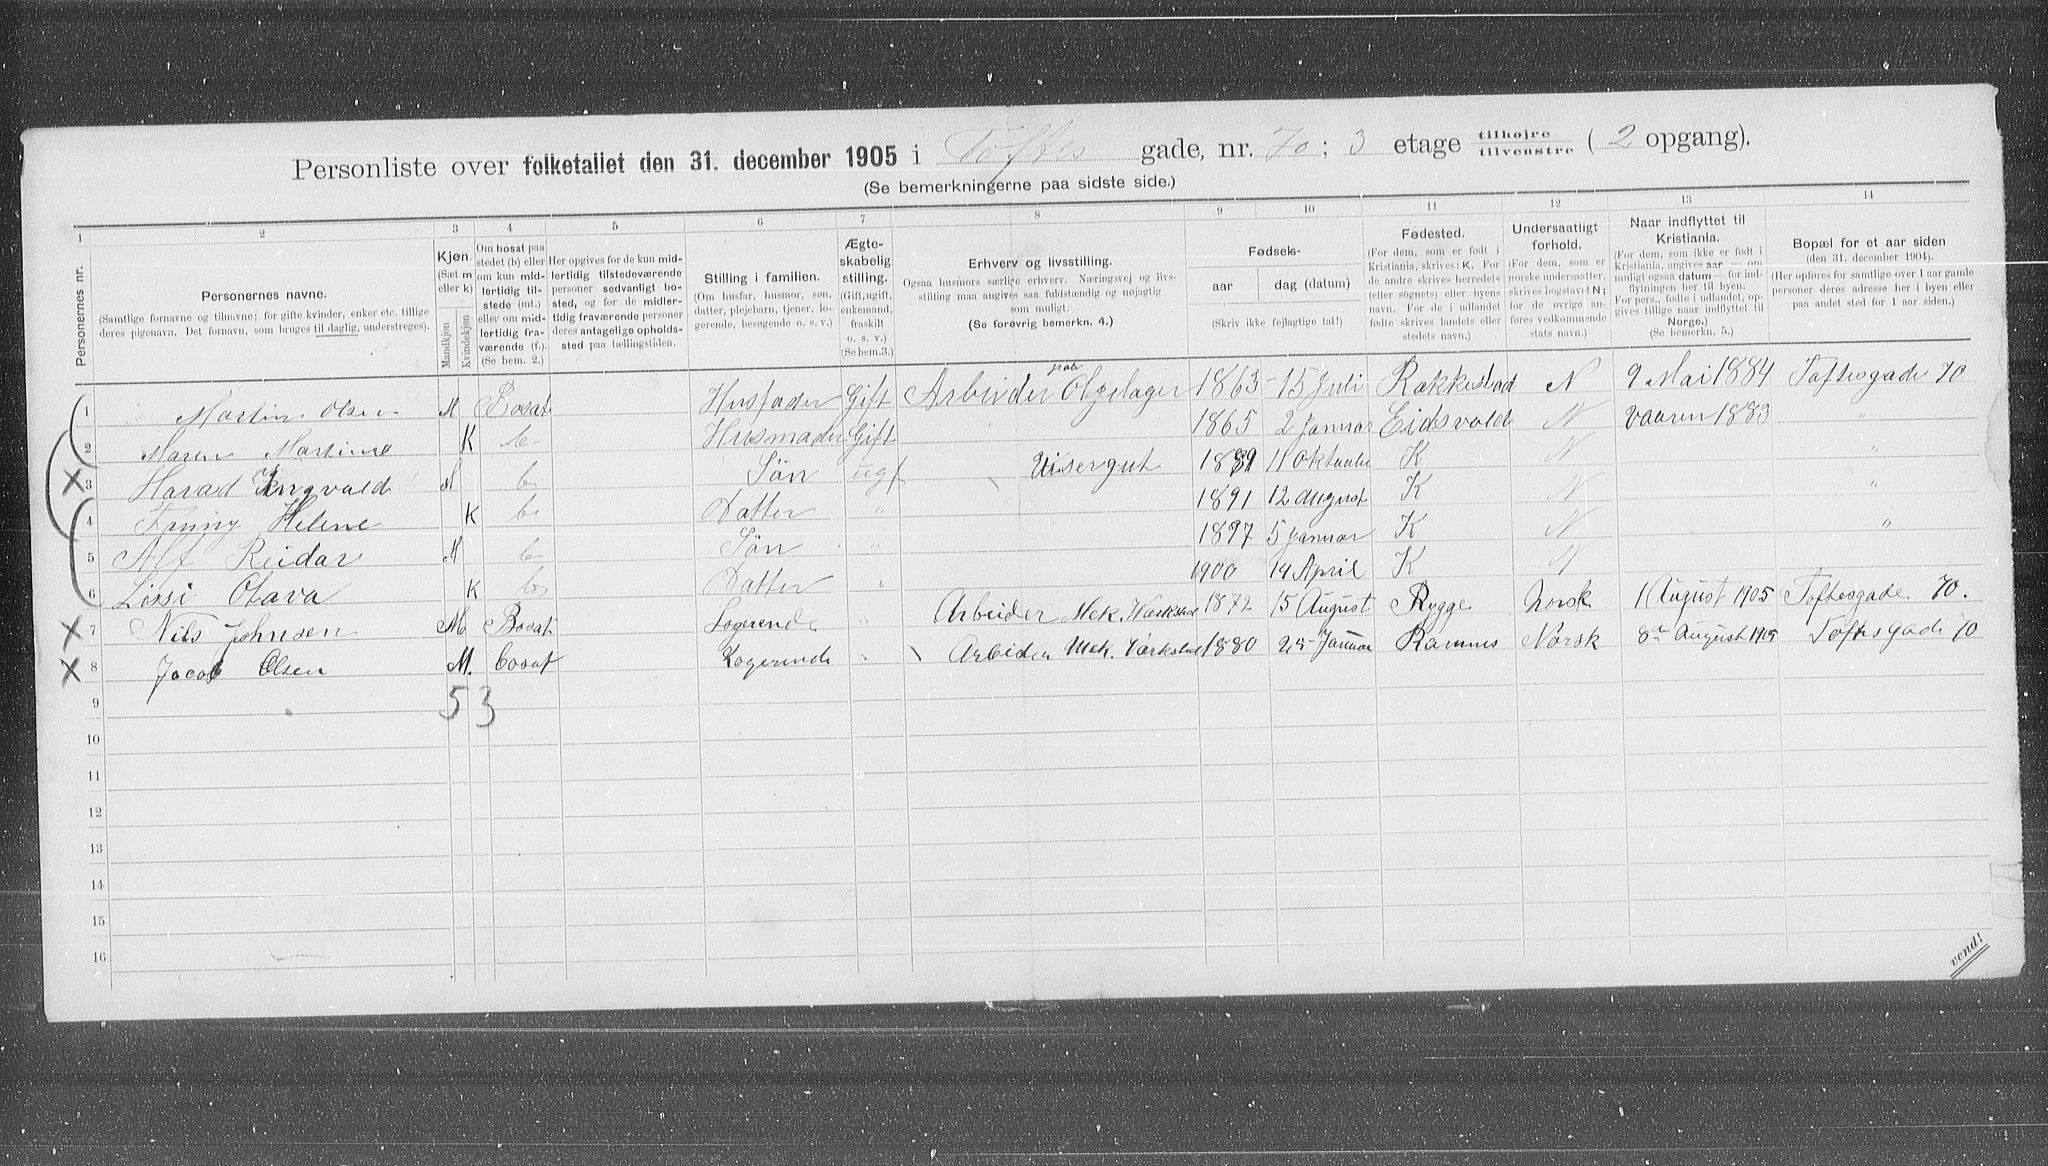 Personliste over folketallet den 31. december 1905 i Toftes gade, nr. 70; 3 etage tilhøjre tilvenstre (2 opgang).
(Se bemerkningerne paa sidste side.)
1 2 3 4 5 6 7 8 9 10 11 12 13 14
Personernes nr.
Personernes navne.
(Samtlige fornavne og tilnavne; for gifte kvinder, enker etc. tillige
deres pigenavn. Det fornavn, som bruges til daglig, understreges).
Kjøn.
(Sæt m
eller k)
Mandkjøn
Kvindekjøn
Om bosat paa
stedet (b) eller
om kun mid-
lertidig til-
stede (mt.)
eller om mid-
lertidig fra-
værende (f.).
(Se bem. 2.)
Her opgives for de kun mid-
lertidig tilstedeværende
personer sedvanligt bo-
sted, og for de midler-
tidig fraværende personer
deres antagelige opholds-
sted paa tællingstiden.
Stilling i familien.
(Om husfar, husmor, søn,
datter, plejebarn, tjener, lo-
gerende, besøgende o. s. v.)
Ægte-
skabelig
stilling.
(Gift, ugift,
enkemand,
fraskilt
o. s. v.)
(Se bem. 3.)
Erhverv og livsstilling.
Ogsaa husmors særlige erhverv. Næringsvej og livs-
stilling maa angives saa fuldstændig og nøjagtig
som muligt.
(Se forøvrig bemerkn. 4.)
Fødsels-
aar dag (datum)
(Skriv ikke fejlagtige tal!)
Fødested.
(For dem, som er født i
Kristiania, skrives: K. For
de andre skrives herredets
(eller sognets) eller byens
navn. For de i udlandet
fødte skrives landets eller
stedets navn.)
Undersaatligt
forhold.
(For dem, som er
norske undersaatter,
skrives bogstavet N;
for de øvrige an-
føres vedkommende
stats navn.)
Naar indflyttet til
Kristiania.
(For dem, som ikke er født i
Kristiania, angives aar — om
muligt ogsaa datum — for ind-
flytningen her til byen.
For pers., fødte i udlandet, op-
gives tillige naar indflyttet til
Norge.)
(Se bemerkn. 5.)
Bopæl for et aar siden
(den 31. december 1904).
(Her opføres for samtlige over 1 aar gamle
personer deres adresse her i byen eller
paa andet sted for 1 aar siden.)
1 Martin Olsen M Bosat Husfader Gift Arbeider Olgelager 1863 - 15 Juli Rakkestad N 9 Mai 1884 Toftesgade 70
2 Maren Martine K b- Husmoder Gift 1865 2 Januar Eidsvold N vaaren 1883 "
3 Harad Ingvald M b- Søn ugf Visergut 1889 11 Oktober K N "
4 Fanny Helene K b- Datter " 1891 12 August K N "
5 Alf Reidar M b- Søn " 1897 5 Januar K N "
6 Lissi Olava K b- Datter " 1900 14 April K N
7 Nils Johnsen M Bosat Logerende " Arbeider Mek. Værksted 1872 15 August Rygge Norsk 1 August 1905 Toftesgade 70.
8 Jacob Olsen M. bosat Logerende " Arbeider Mek. Værksted 1880 25 Januar Ramnes Norsk 8de August 1905 Toftesgade 70
9 5 3
10
11
12
13
14
15
16
vend!